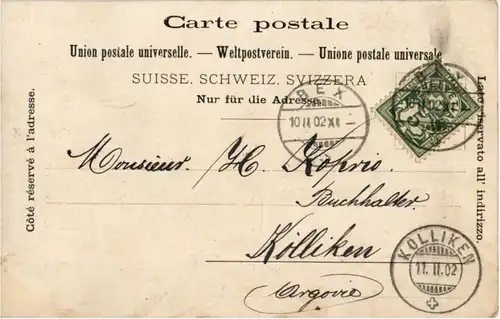 Carte postale
Union postale universelle. — Weltpostverein. — Unione postale universale
SUISSE. SCHWEIZ. SVIZZERA
Nur für die Adresse.
Côté réservé à l'adresse.
Lato riservato all' indirizzo.
BEX
10 II 02 XI
BEX
10 II 02 XI
Monsieur. H. Koprio
Buchhalter.
Kölliken
Argovie
KÖLLIKEN
11. II. 02